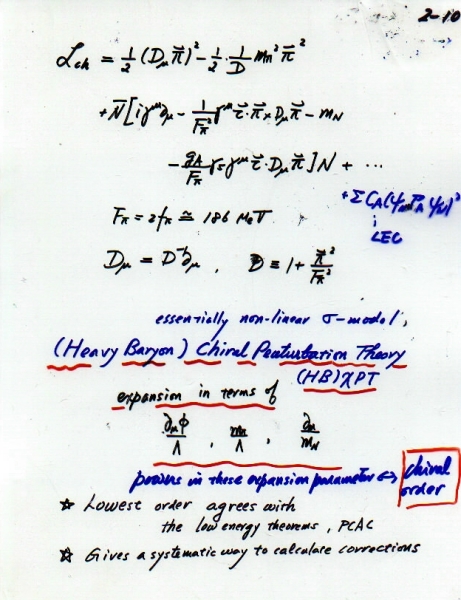 2-10
ℒ_ch = 1/2 (D_μ π⃗)² - 1/2 · 1/D m_π² π⃗²
+ N̄ [iγ^μ ∂_μ - 1/F_π² γ^μ τ⃗·π⃗ × D_μ π⃗ - m_N
- g_A/F_π γ_5 γ^μ τ⃗·D_μ π⃗ ] N + ...
+ Σ C_A (ψ̄_N Γ_A ψ_N)²
LEC
F_π = 2f_π ≅ 186 MeV
D_μ = D⁻¹∂_μ , D ≡ 1 + π⃗²/F_π²
essentially non-linear σ-model,
(Heavy Baryon) Chiral Peaturbation Theory
(HB)χPT
expansion in terms of
∂_μ φ/Λ , m_π/Λ , ∂_μ/m_N
powers in these expansion parameter ↔ chiral order
☆ Lowest order agrees with
the low energy theorems, PCAC
☆ Gives a systematic way to calculate corrections